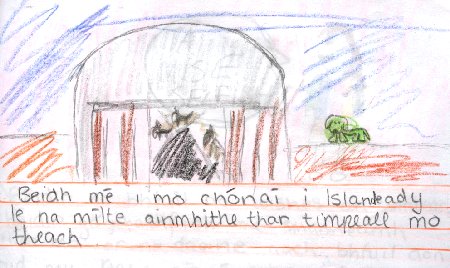 Beidh mē i mo chónaí i Islandeady
le na mílte ainmhithe thar timpeall mo
theach.